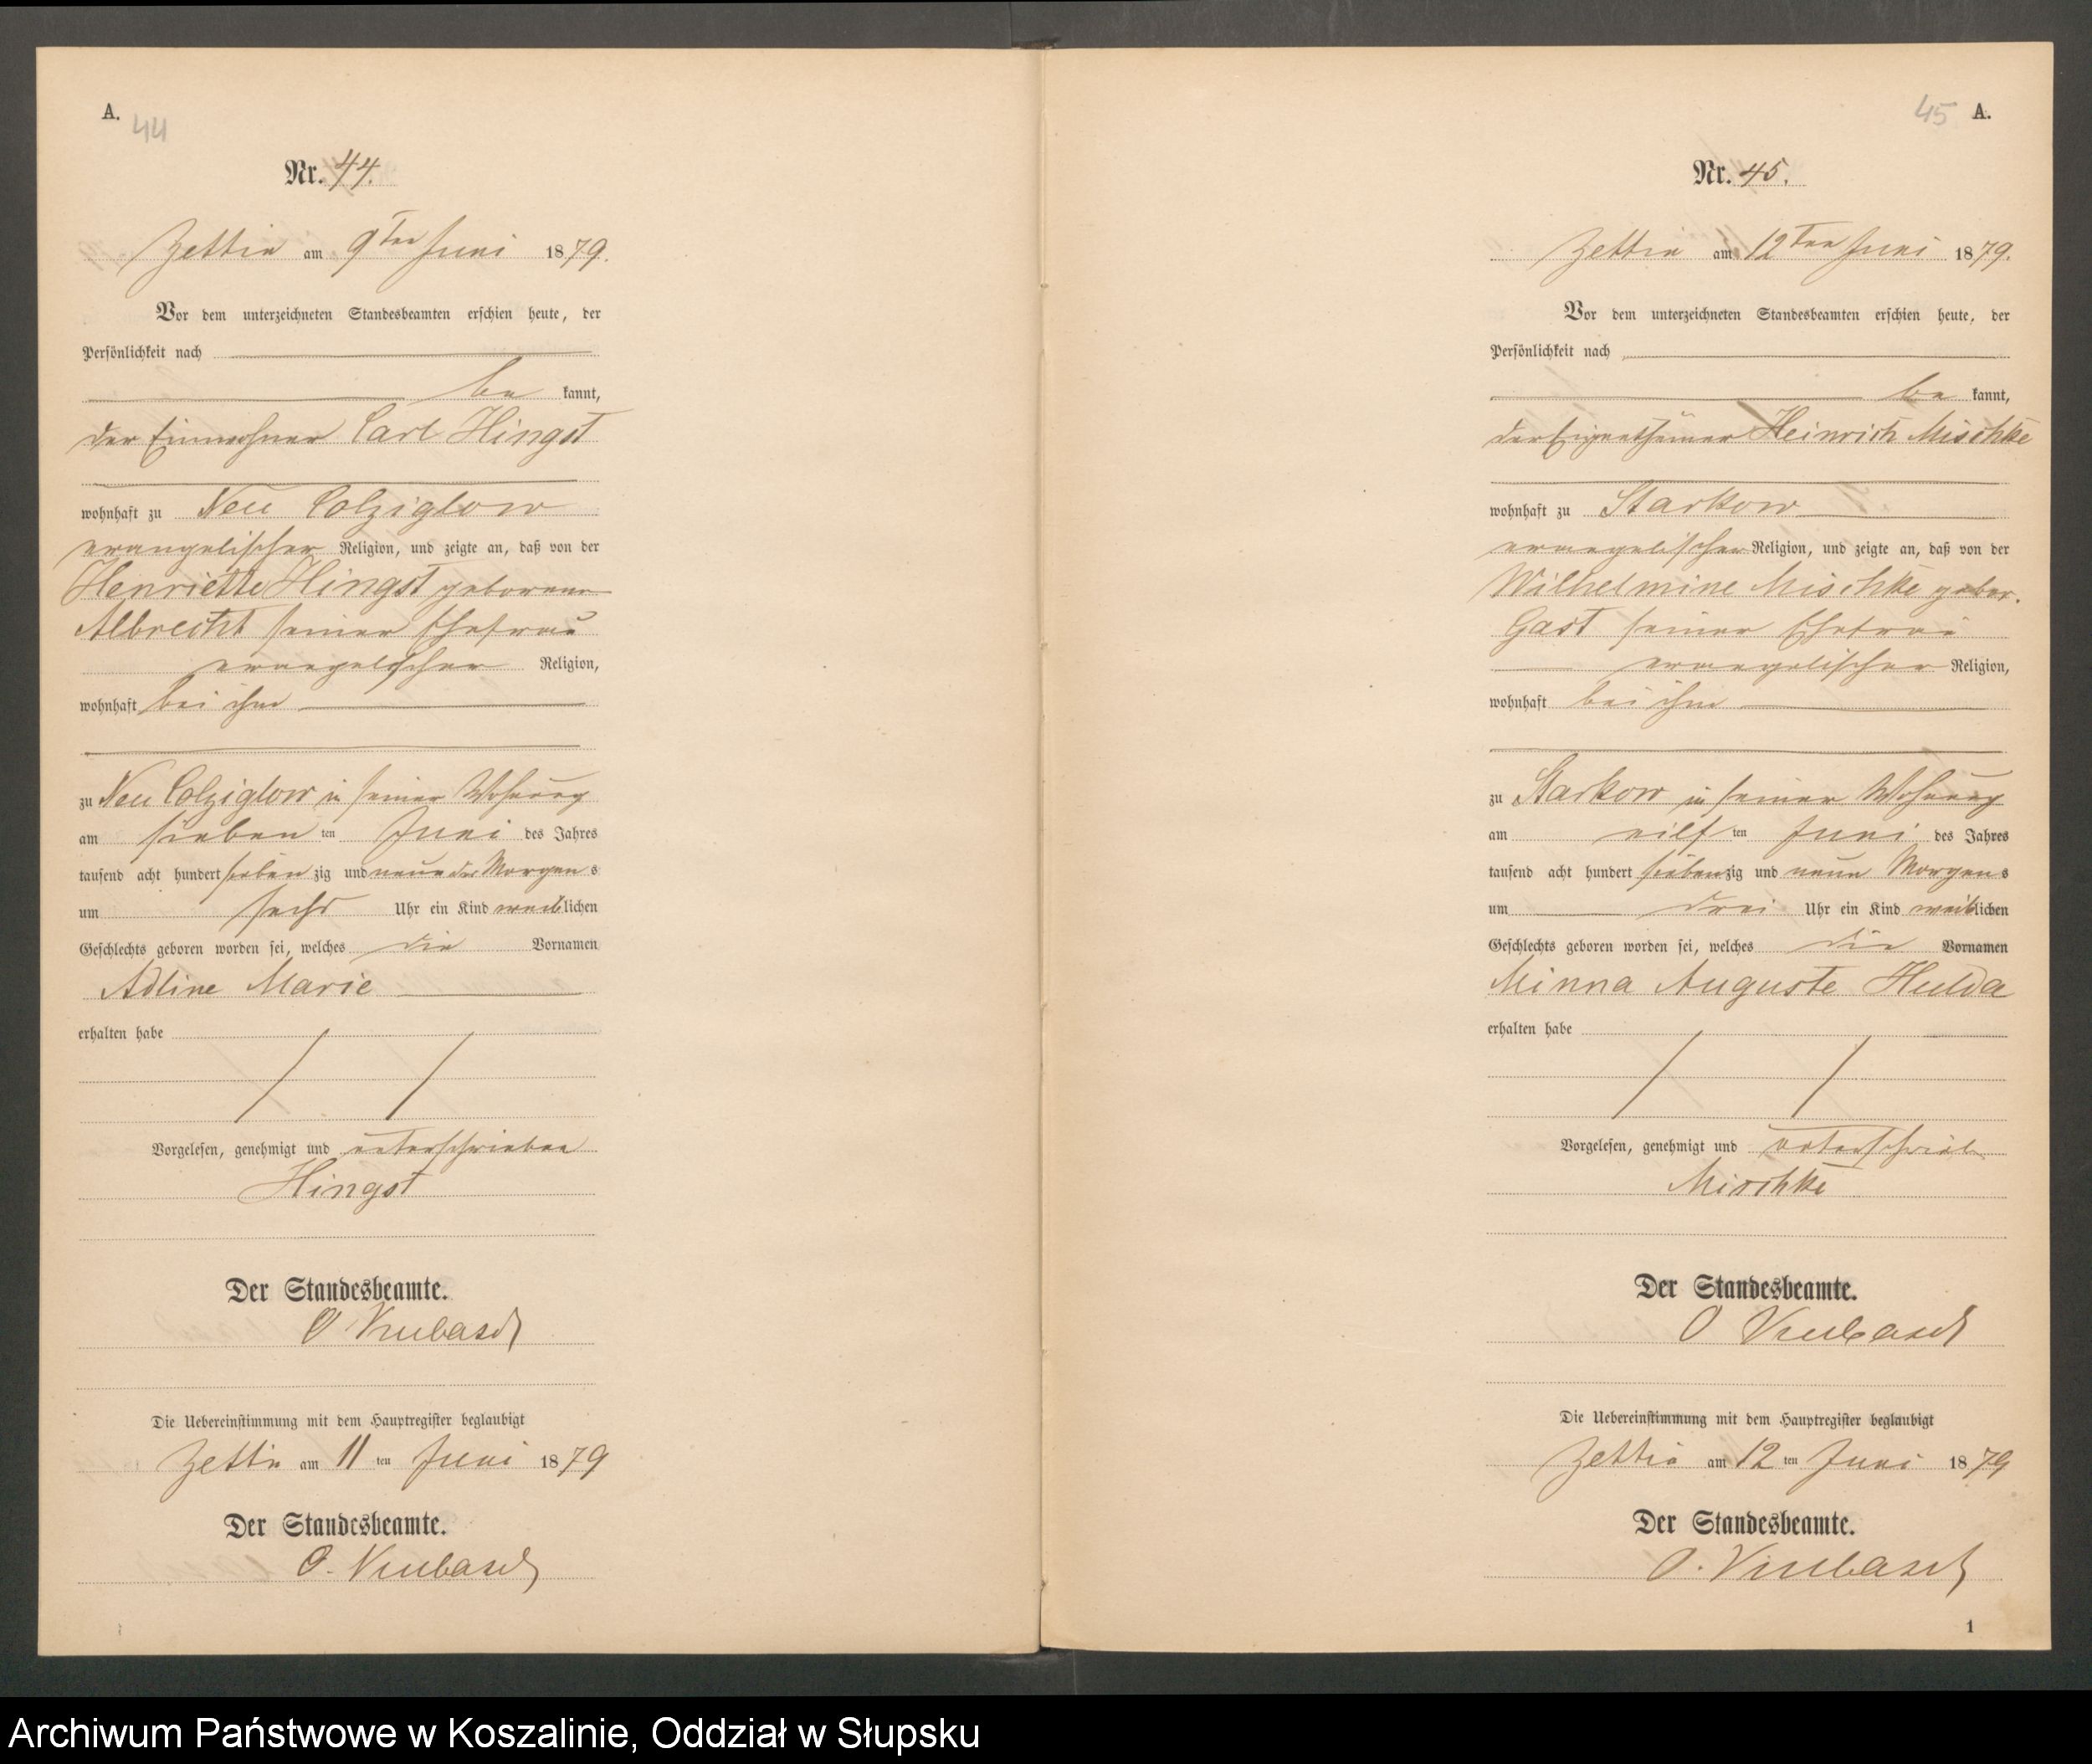 A.
44
Nr. 44.
Zettin am 9ten Juni 1879.
Vor dem unterzeichneten Standesbeamten erschien heute, der
Persönlichkeit nach
be kannt,
der Einwohner Carl Hingst
wohnhaft zu Neu Colziglow
evangelischer Religion, und zeigte an, daß von der
Henriette Hingst geborene
Albrecht seiner Ehefrau
evangelischer Religion,
wohnhaft bei ihm
zu Neu Colziglow in seiner Wohnung
am sieben ten Juni des Jahres
tausend acht hundert sieben zig und neun des Morgen s
um sechs Uhr ein Kind weiblichen
Geschlechts geboren worden sei, welches die Vornamen
Adline Marie
erhalten habe
Vorgelesen, genehmigt und unterschrieben
Hingst
Der Standesbeamte.
O
Die Uebereinstimmung mit dem Hauptregister beglaubigt
Zettin am 11 ten Juni 1879
Der Standesbeamte.
O.
45 A.
Nr. 45.
Zettin am 12ten Juni 1879.
Vor dem unterzeichneten Standesbeamten erschien heute, der
Persönlichkeit nach
be kannt,
der Eigenthümer Heinrich Mischke
wohnhaft zu Starkow
evangelischer Religion, und zeigte an, daß von der
Wilhelmine Mischke gebor.
Gast seiner Ehefrau
evangelischer Religion,
wohnhaft bei ihm
zu Starkow in seiner Wohnung
am eilf ten Juni des Jahres
tausend acht hundert siebenzig und neun Morgens
um drei Uhr ein Kind weiblichen
Geschlechts geboren worden sei, welches die Vornamen
Minna Auguste Hulda
erhalten habe
Vorgelesen, genehmigt und unterschrieb.
Mischke
Der Standesbeamte.
O
Die Uebereinstimmung mit dem Hauptregister beglaubigt
Zettin am 12 ten Juni 1879
Der Standesbeamte.
O.
1
Archiwum Państwowe w Koszalinie, Oddział w Słupsku